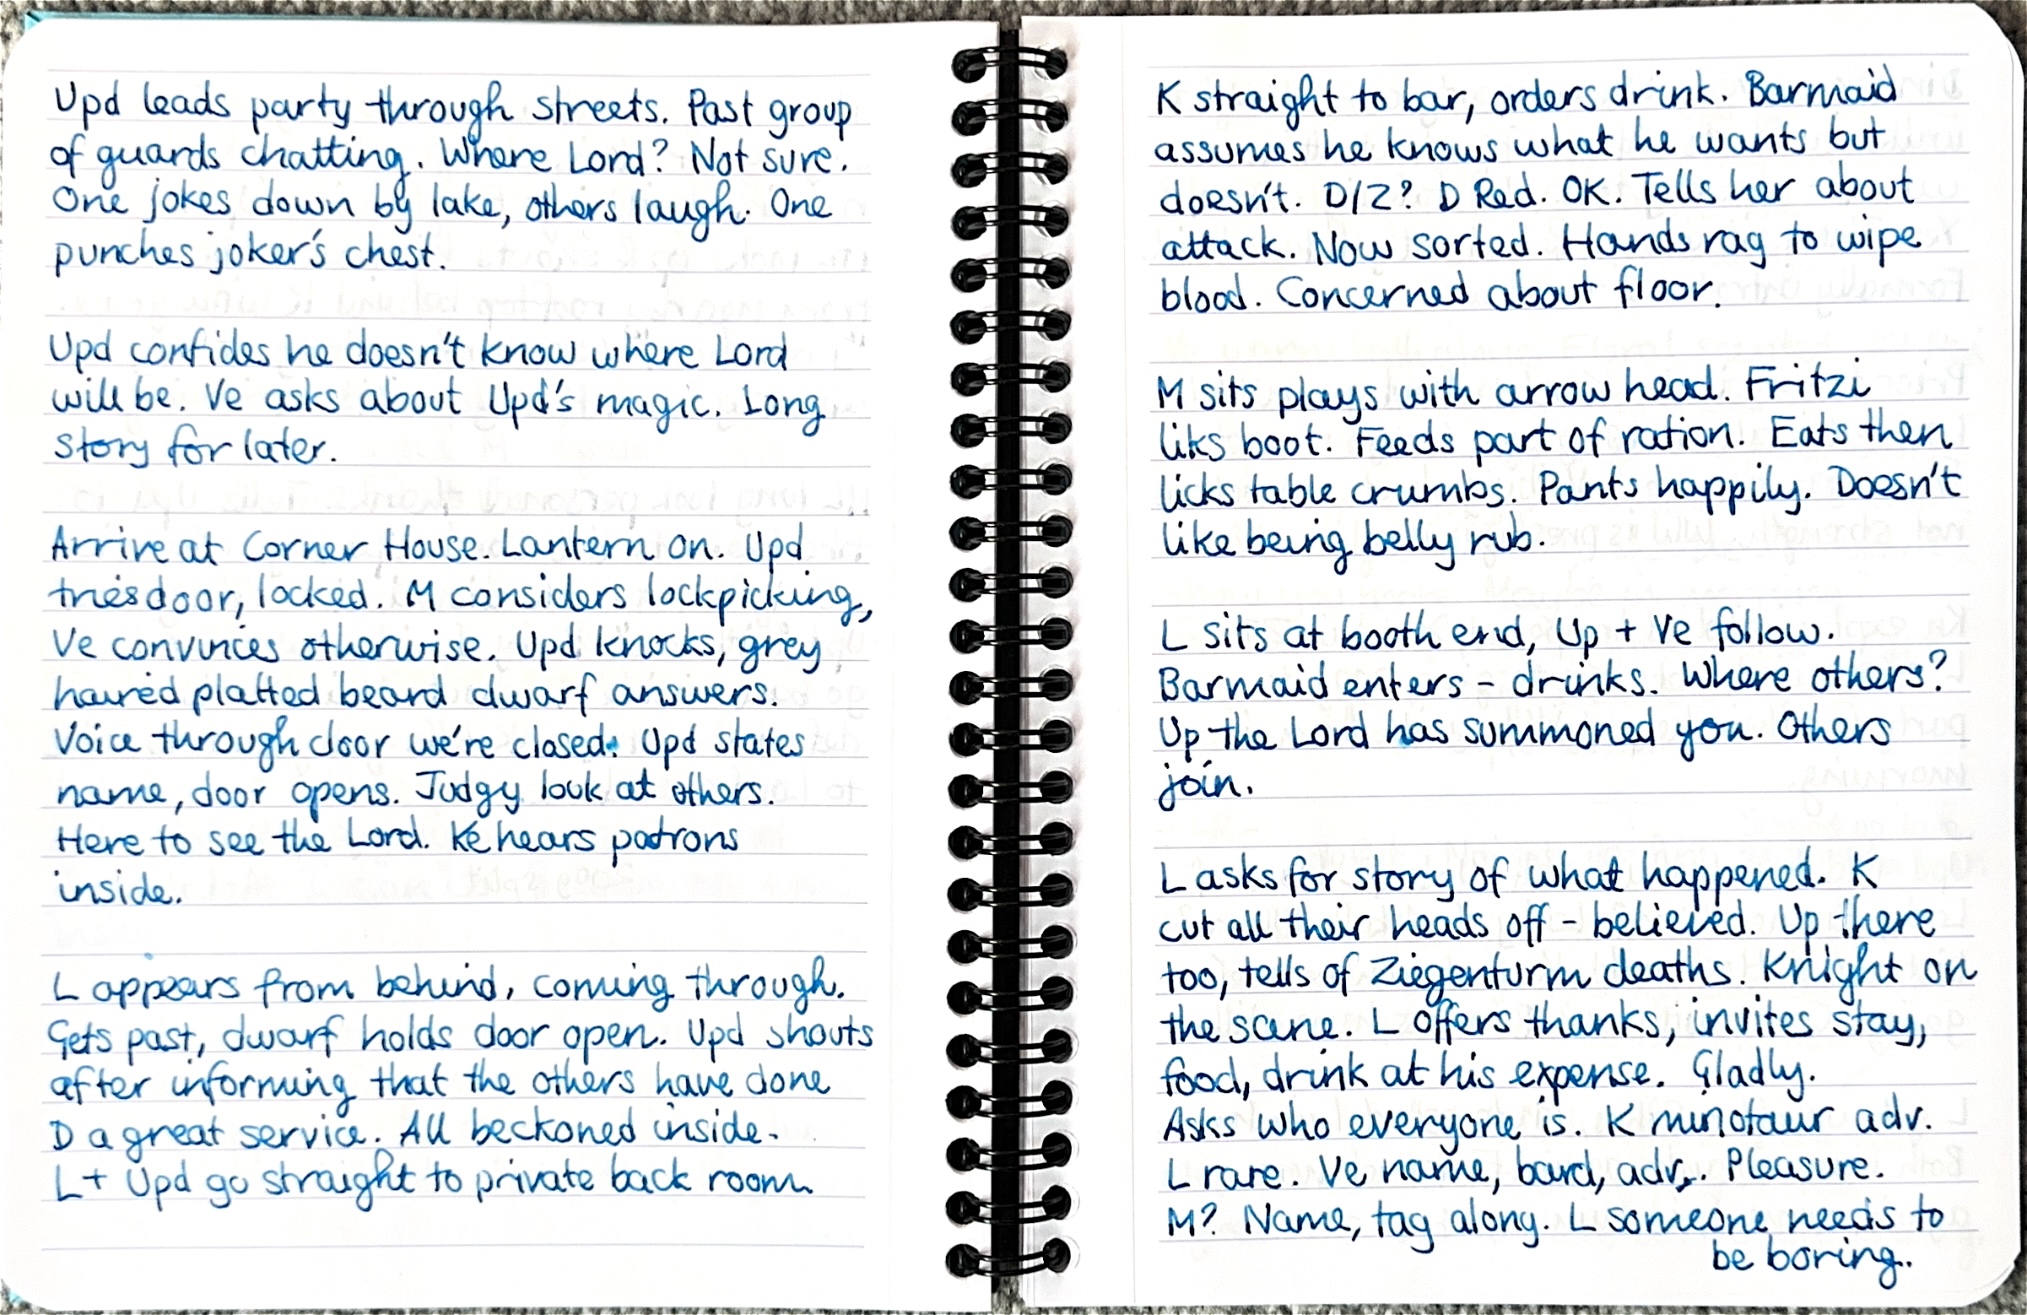 Upd leads party through streets. Past group
of guards chatting. Where Lord? Not sure.
One jokes down by lake, others laugh. One
punches joker's chest.
Upd confides he doesn't know where Lord
will be. Ve asks about Upd's magic. Long
story for later.
Arrive at Corner House. Lantern on. Upd
tries door, locked. M considers lockpicking,
Ve convinces otherwise. Upd knocks, grey
haired platted beard dwarf answers.
Voice through door we're closed. Upd states
name, door opens. Judgy look at others.
Here to see the Lord. Ke hears patrons
inside.
L appears from behind, coming through.
Gets past, dwarf holds door open. Upd shouts
after informing that the others have done
D a great service. All beckoned inside.
L + Upd go straight to private back room.
K straight to bar, orders drink. Barmaid
assumes he knows what he wants but
doesn't. D/Z? D Red. OK. Tells her about
attack. Now sorted. Hands rag to wipe
blood. Concerned about floor.
M sits plays with arrow head. Fritzi
liks boot. Feeds part of ration. Eats then
licks table crumbs. Pants happily. Doesn't
like being belly rub.
L sits at booth end, Up + Ve follow.
Barmaid enters - drinks. Where others?
Up the Lord has summoned you. Others
join.
L asks for story of what happened. K
cut all their heads off - believed. Up there
too, tells of Ziegenturm deaths. Knight on
the scene. L offers thanks, invites stay,
food, drink at his expense. Gladly.
Asks who everyone is. K minotaur adv.
L rare. Ve name, bard, adv. Pleasure.
M? Name, tag along. L someone needs to
be boring.